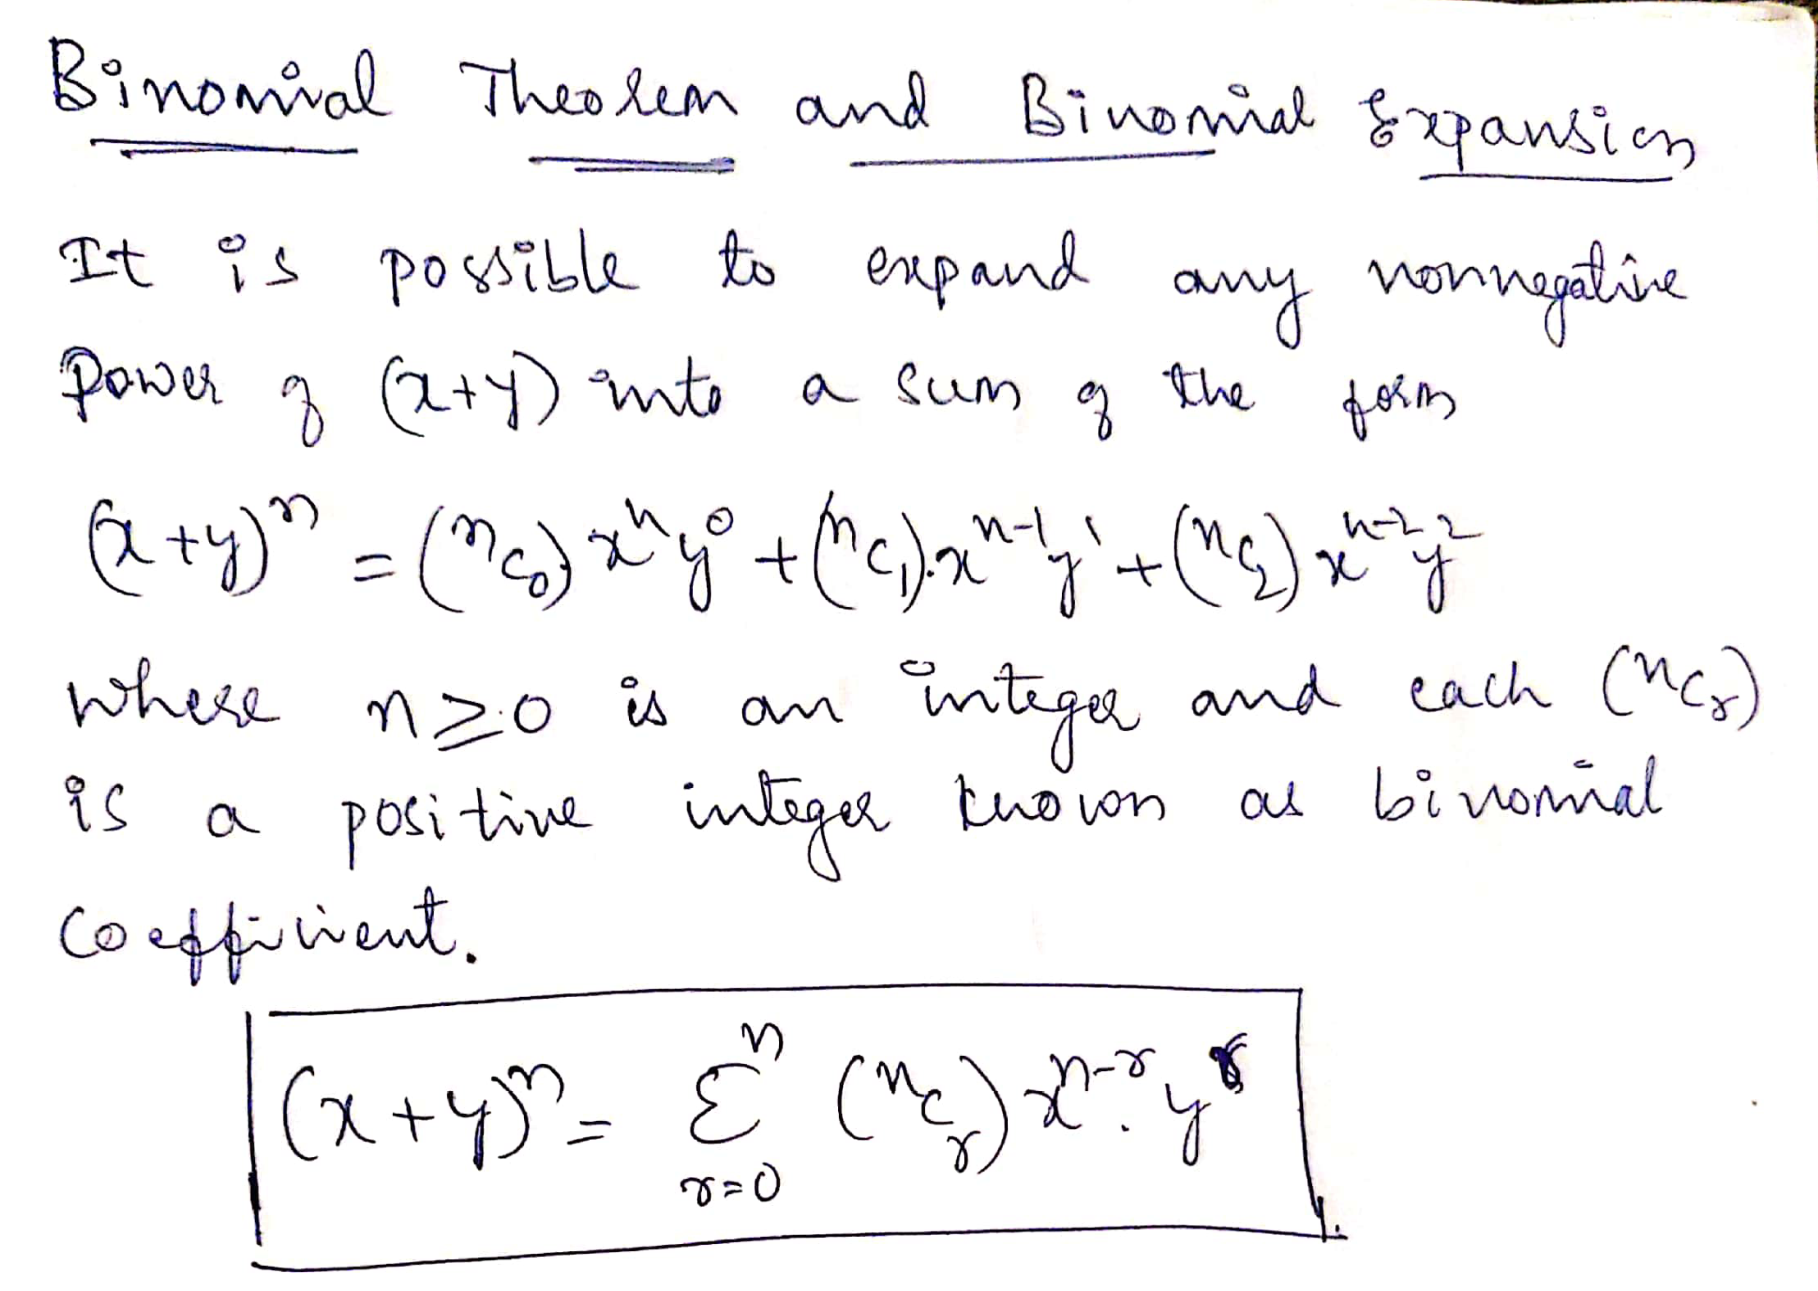 Binomial Theorem and Binomial Expansion
It is possible to expand any nonnegative
Power of (x+y) into a sum of the form
(x+y)ⁿ = (ⁿC₀) xⁿy⁰ + (ⁿC₁).xⁿ⁻¹y¹ + (ⁿC₂) xⁿ⁻²y²
where n ≥ 0 is an integer and each (ⁿCᵣ)
is a positive integer known as binomial
coefficient.
(x+y)ⁿ = Σⁿᵣ₌₀ (ⁿCᵣ) xⁿ⁻ʳ. yʳ